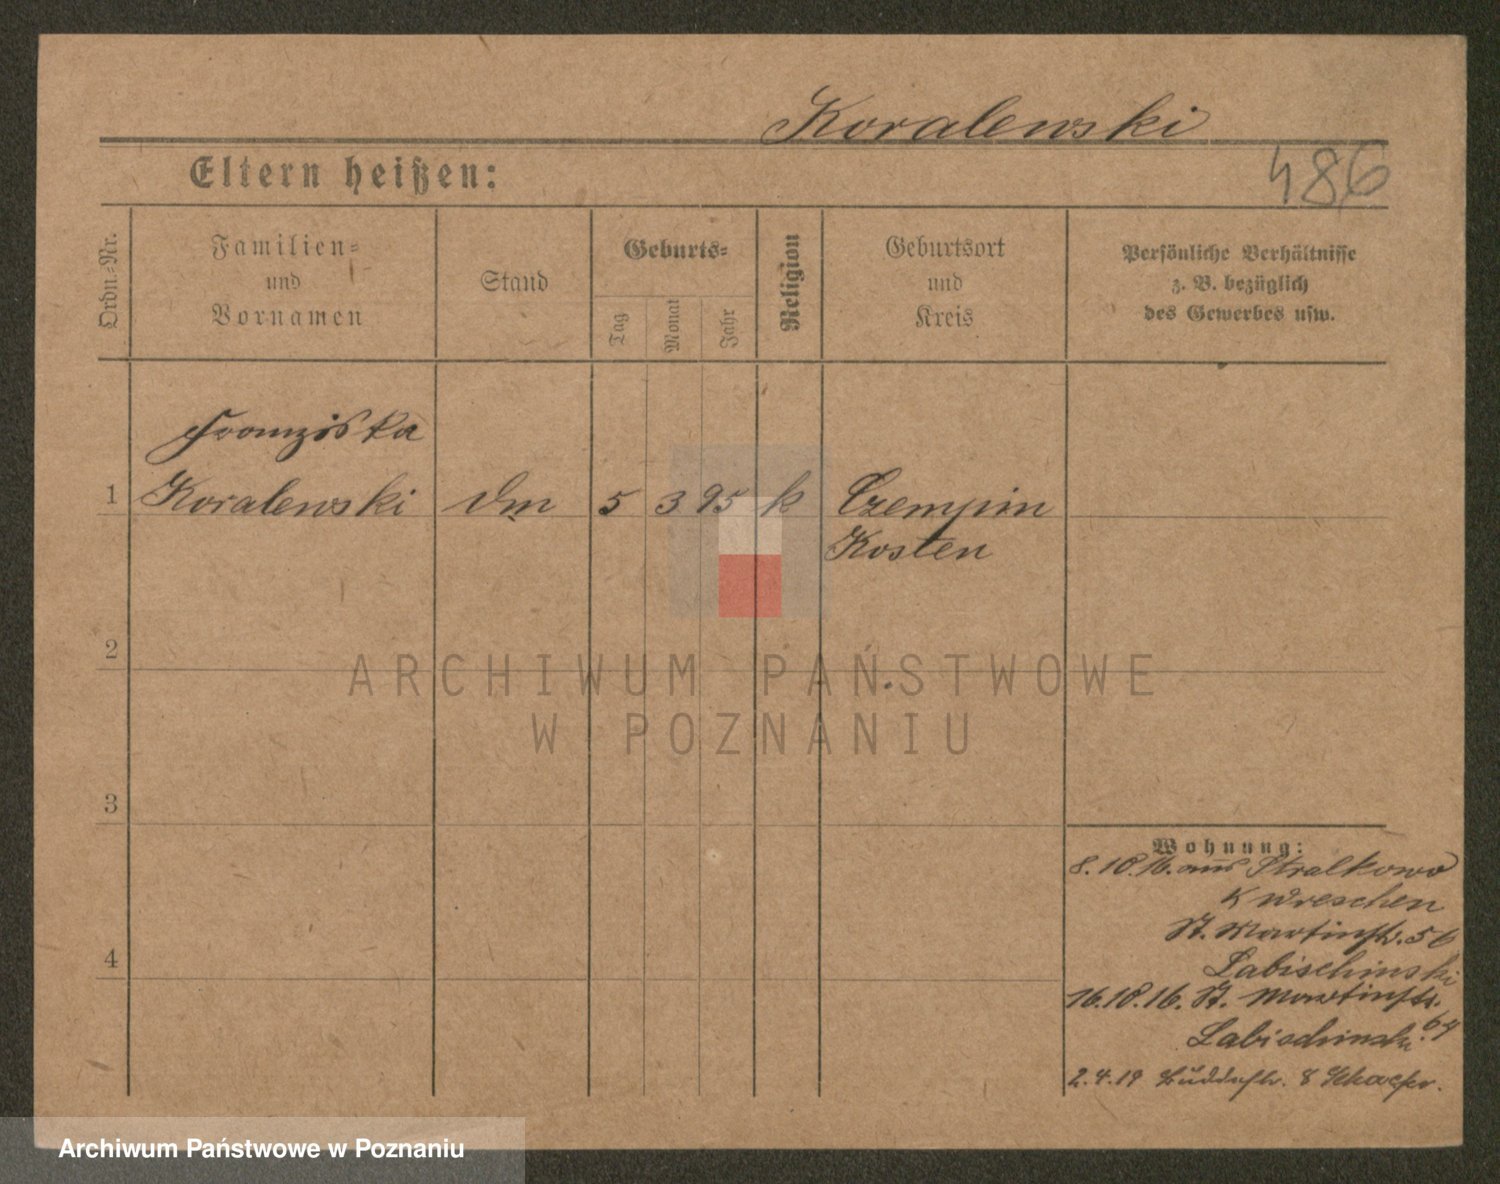 Koralewski
Eltern heißen:
486
Ordn.-Nr.
Familien-
und
Vornamen
Stand
Geburts-
Tag
Monat
Jahr
Religion
Geburtsort
und
Kreis
Persönliche Verhältnisse
z. B. bezüglich
des Gewerbes usw.
Franziska
1 Koralewski Dm 5 3 95 k Czempin
Kosten
2
ARCHIWUM PAŃSTWOWE
W POZNANIU
3
Wohnung:
8.10.16. aus Stralkowo
K Wreschen
4
St. Martinstr. 56
Labischinski
16.10.16. St. Martinstr.
64
Labischinski
2.4.19 8
Archiwum Państwowe w Poznaniu